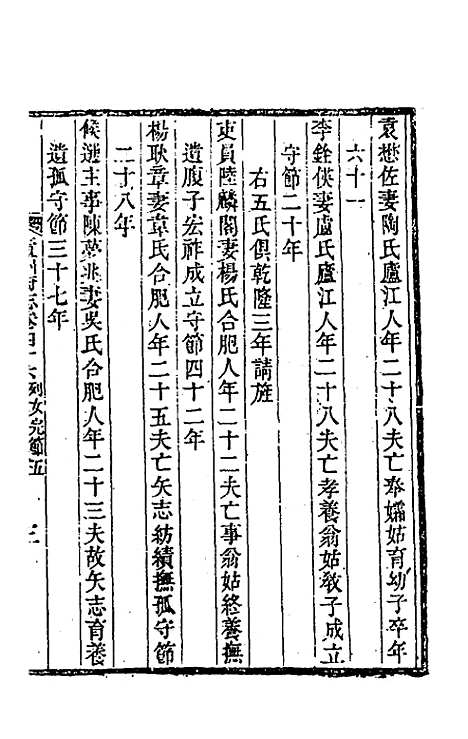 袁懋佐妻陶氏廬江人年二十八夫亡奉孀姑育幼子卒年
六十一
李銓俠妻盧氏廬江人年二十八夫亡孝養翁姑教子成立
守節二十年
右五氏俱乾隆三年請旌
吏員陸麟閣妻楊氏合肥人年二十二夫亡事翁姑終養撫
遺腹子宏祚成立守節四十二年
楊耿章妻韋氏合肥人年二十五夫亡矢志紡績撫孤守節
二十八年
候選主事陳夢兆妻吳氏合肥人年二十三夫故矢志育養
遺孤守節三十七年
州府志卷四十六列女完節五
三